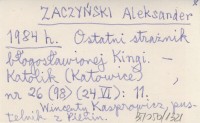 ZACZYŃSKI Aleksander
1984 h. Ostatni strażnik
błogosławionej Kingi. –
Katolik (Katowice)
nr 26 (98) (24 VI) : 11.
Wincenty Kasprowicz, pus-
telnik z Pienin.